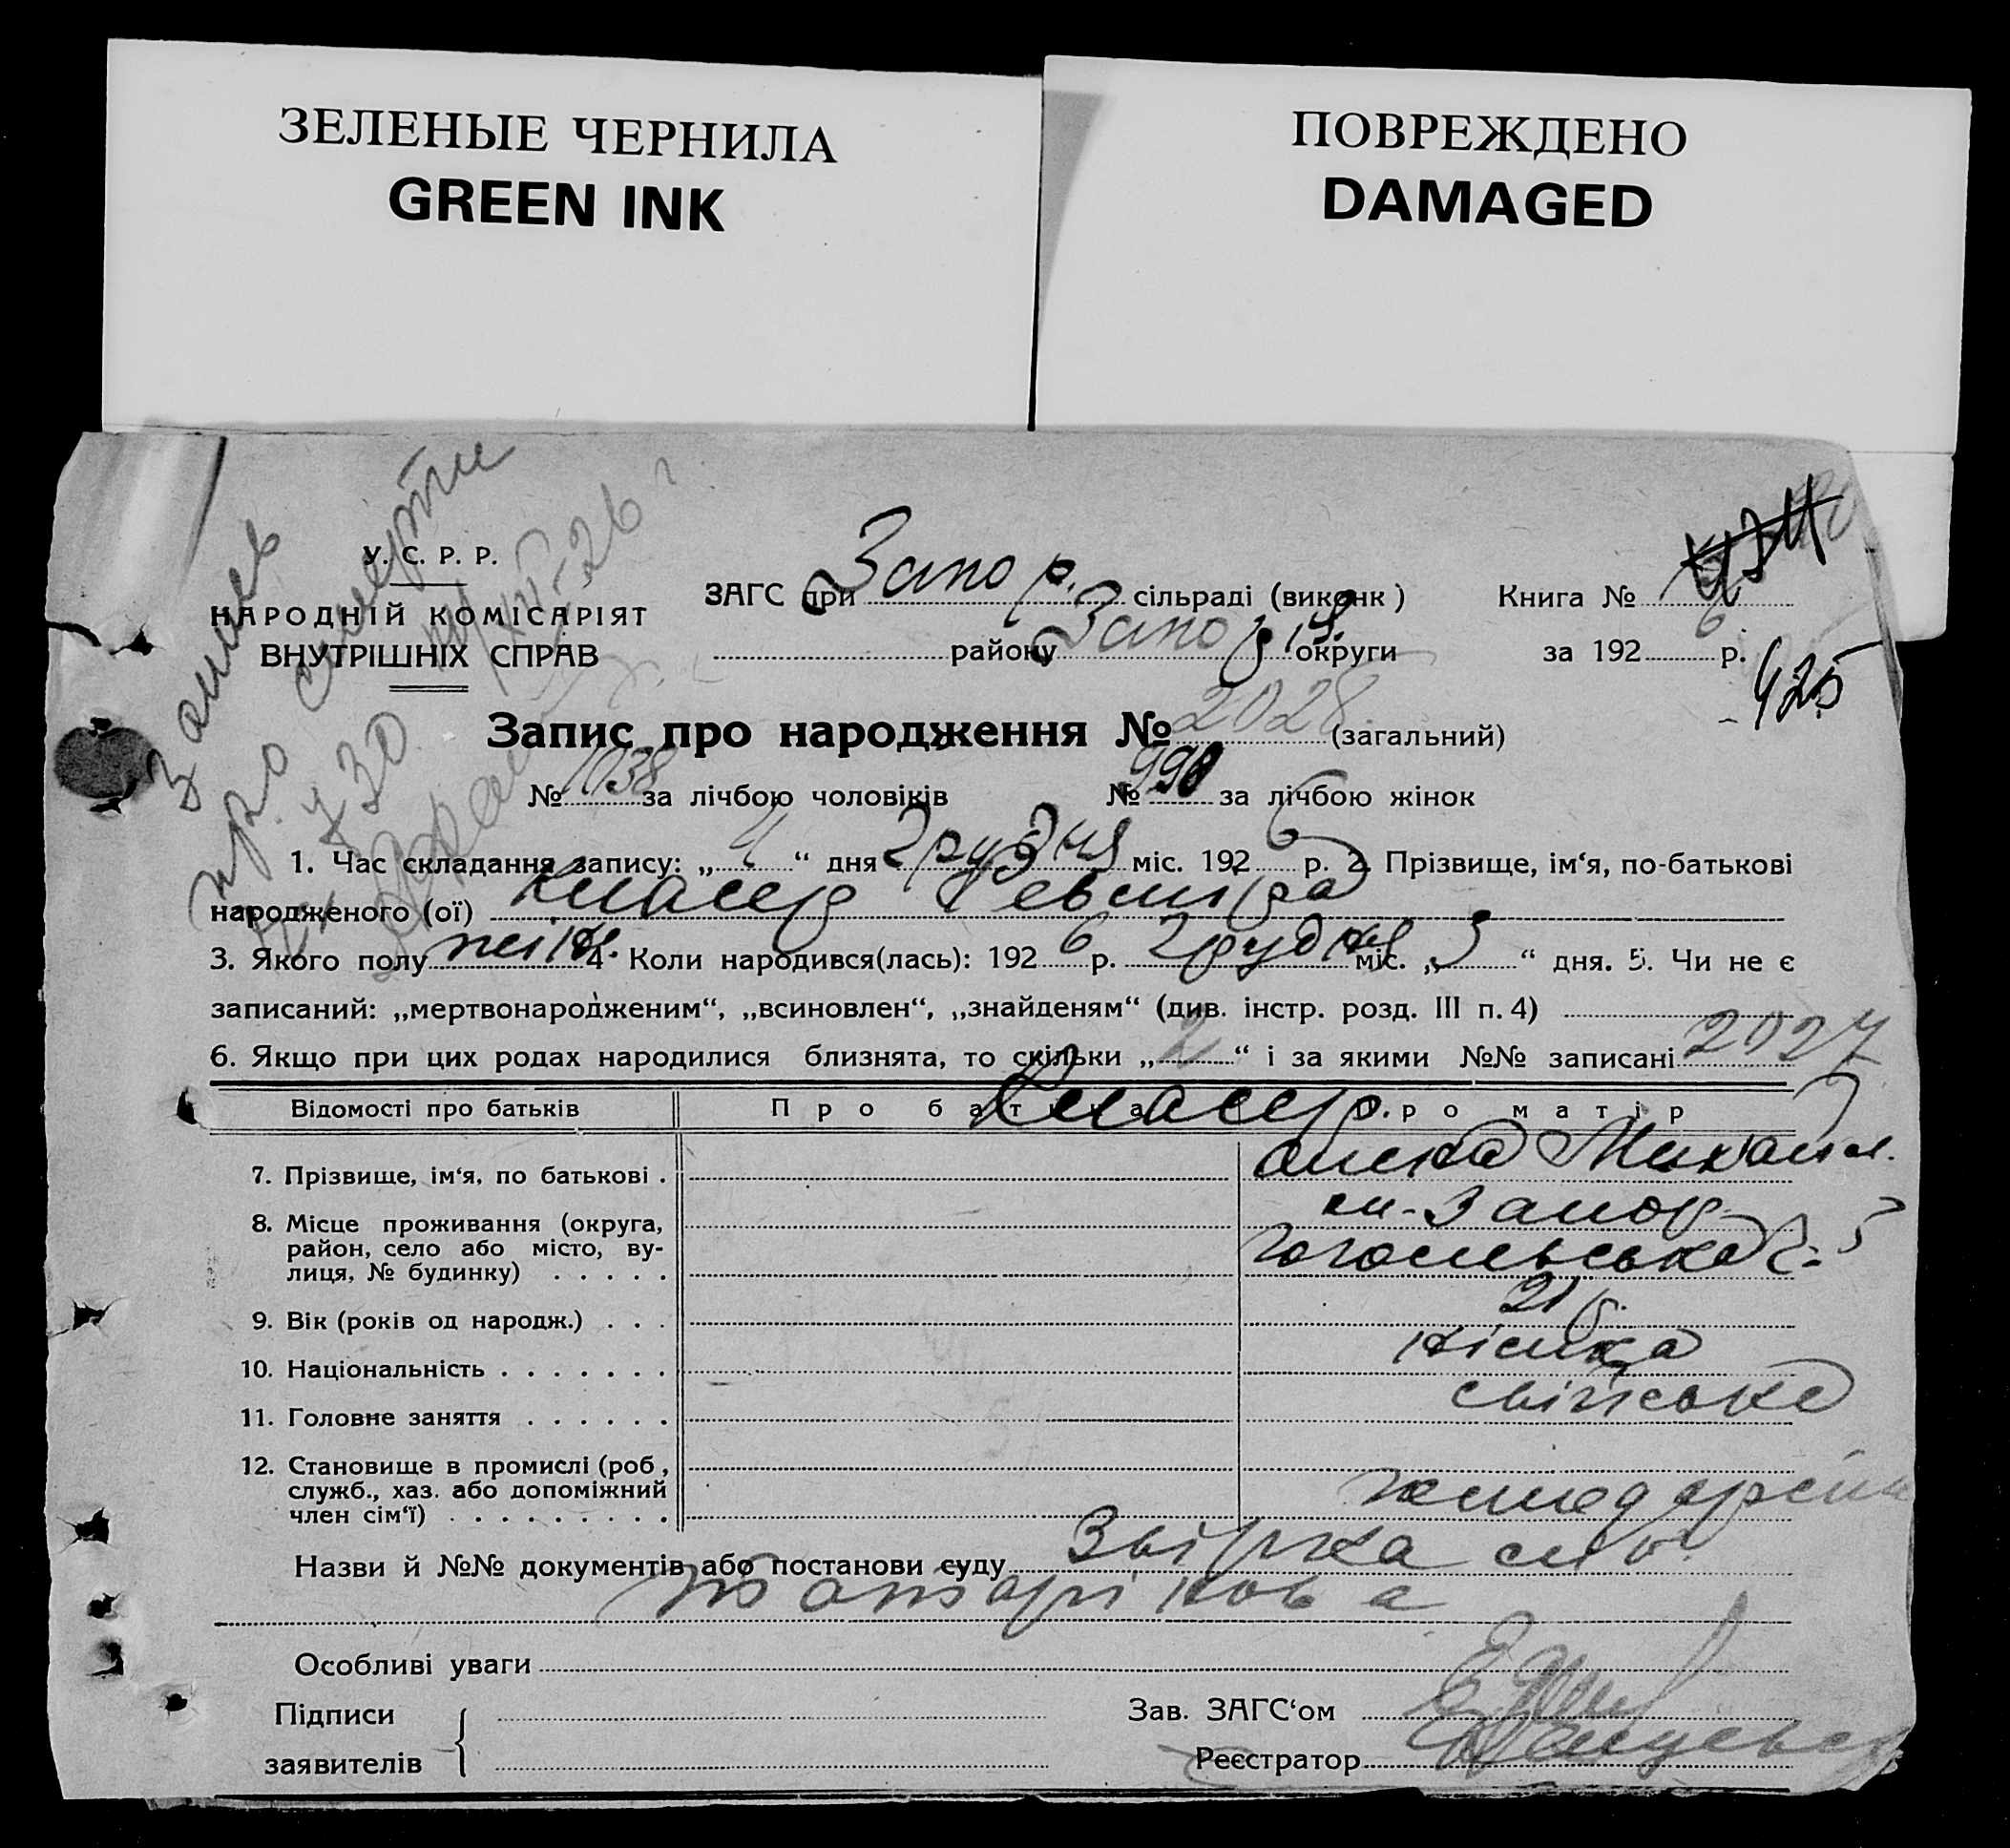 ЗЕЛЕНЫЕ ЧЕРНИЛА
GREEN INK
ПОВРЕЖДЕНО
DAMAGED
У. С. Р. Р.
НАРОДНІЙ КОМІСАРІЯТ
ВНУТРІШНІХ СПРАВ
Запис
про смерти
№ 730 XII-26 г.
ЗАГС при Запор. сільраді (виконк)
району Запоріз. округи
Книга №
за 1926 р.
425
Запис про народження № 2028 (загальний)
№ 1038 за лічбою чоловіків № 990 за лічбою жінок
1. Час складання запису: „4“ дня Грудня міс. 1926 р. 2. Прізвище, ім‘я, по-батькові
народженого (ої) Класер
3. Якого полу жін. 4. Коли народився(лась): 1926 р. Грудня міс. „3“ дня. 5. Чи не є
записаний: „мертвонародженим“, „всиновлен“, „знайденям“ (див. інстр. розд. III п. 4)
6. Якщо при цих родах народилися близнята, то скільки „2“ і за якими №№ записані 2027
Відомості про батьків Про батька Про матір
Класер
7. Прізвище, ім‘я, по батькові . Михайл.
8. Місце проживання (округа, район, село або місто, вулиця, № будинку) . . . . . м. Запор. Гогольська
9. Вік (років од народж.) . . . 21 р.
10. Національність . . . . . . . німка
11. Головне заняття . . . . . . світське
12. Становище в промислі (роб, служб., хаз. або допоміжний член сім‘ї) . . . . . . . . .
Назви й №№ документів або постанови суду Звірка
Особливі уваги
Підписи
заявителів
Зав. ЗАГС‘ом
Реєстратор